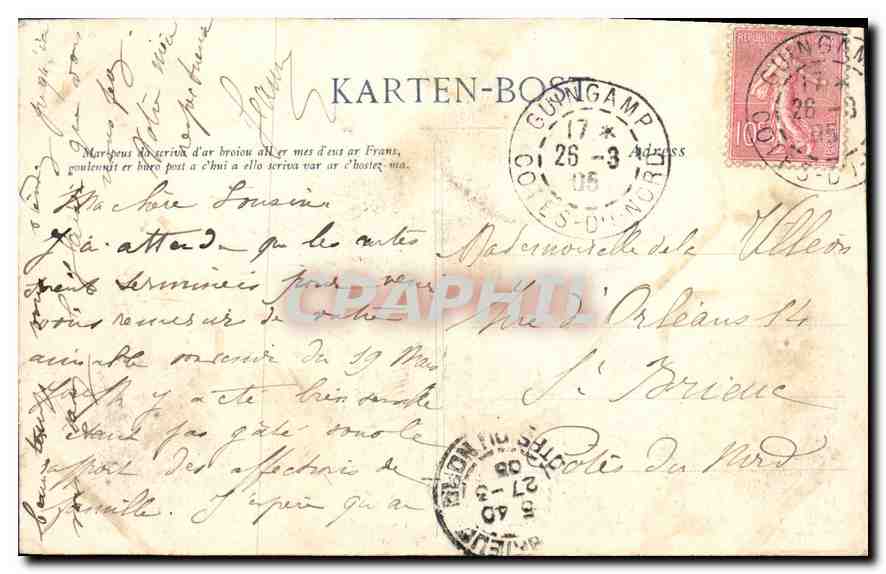 KARTEN-BOST
Mar peus da scriva d'ar broiou all er mes d'eus ar Frans,
goulennit er buro post a c'hui a ello scriva var ar c'hostez-ma.
Adress
GUINGAMP
17 *
26 -3
05
COTES-DU-NORD
GUINGAMP
17 *
26 -3
05
COTES-DU-
10
Ma chère Cousine
J'ai attendu que les cartes
soient terminées pour venir
vous remercier de votre
aimable souvenir du 19 Mars
Joseph y a été bien sensible
étant pas gâté sous le
rapport des affections de
famille. J'espère qu'au
beau temps
Mademoiselle de la Villéon
Rue d'Orléans 14
St Brieuc
Côtes du Nord
COTES DU NORD
5 40
27 -3
05
BRIEUC
CPAPHIL